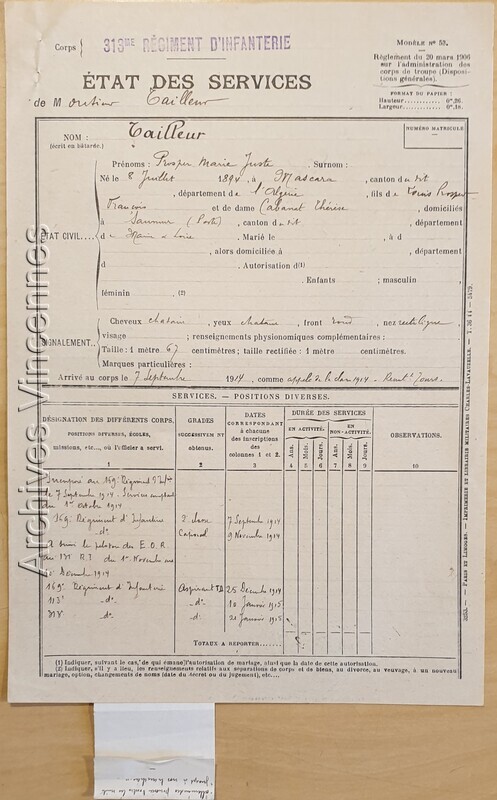 Corps 313ME RÉGIMENT D'INFANTERIE
MODÈLE N° 53.
Règlement du 20 mars 1906
sur l'administration des
corps de troupe (Disposi-
tions générales).
FORMAT DU PAPIER :
Hauteur............ 0m,36.
Largeur............ 0m,18.
ÉTAT DES SERVICES
de M onsieur Tailleur
NOM : Tailleur
(écrit en bâtarde.)
NUMÉRO MATRICULE
Prénoms : Prosper Marie Juste Surnom :
Né le 8 Juillet 1894, à Mascara, canton de dit
, département de l'Algérie, fils de Louis Prosper
François et de dame Cabanat Thérèse, domiciliés
à Saumur (Poste), canton de dit, département
ÉTAT CIVIL.... d e Maine & Loire. Marié le , à d
, alors domiciliée à , département
d . Autorisation d(1)
. Enfants ; masculin ,
féminin . (2)
Cheveux chatain, yeux chatain, front rond, nez rectiligne,
visage ; renseignements physionomiques complémentaires :
SIGNALEMENT.. Taille : 1 mètre 67 centimètres; taille rectifiée : 1 mètre centimètres.
Marques particulières :
Arrivé au corps le 7 Septembre 1914, comme appelé de la classe 1914
SERVICES. — POSITIONS DIVERSES.
DÉSIGNATION DES DIFFÉRENTS CORPS,
POSITIONS DIVERSES, ÉCOLES,
missions, etc..., où l'officier a servi.
GRADES
SUCCESSIVEMENT
obtenus.
DATES
CORRESPONDANT
à chacune
des inscriptions
des
colonnes 1 et 2.
DURÉE DES SERVICES
EN ACTIVITÉ.
EN
NON-ACTIVITÉ.
Ans. Mois. Jours. Ans. Mois. Jours.
OBSERVATIONS.
1 2 3 4 5 6 7 8 9 10
Incorporé au 169e Régiment d'Infie
le 7 Septembre 1914. Services comptant
du 1er octobre 1914
169e Régiment d'Infanterie 2e classe 7 Septembre 1914
-do- Caporal 9 Novembre 1914
A suivi le peloton des E.O.R.
du R.I. du 1er Novembre au
Décembre 1914
169e Régiment d'Infanterie Aspirant T.D. 25 Décembre 1914
113e -do- -do- 18 Janvier 1915
313e do- -do- 21 Janvier 1915
TOTAUX A REPORTER
(1) Indiquer, suivant le cas, de qui émane l'autorisation de mariage, ainsi que la date de cette autorisation.
(2) Indiquer, s'il y a lieu, les renseignements relatifs aux séparations de corps et de biens, au divorce, au veuvage, à un nouveau
mariage, option, changements de noms (date du décret ou du jugement), etc....
PARIS ET LIMOGES. — IMPRIMERIE ET LIBRAIRIE MILITAIRES CHARLES-LAVAUZELLE.
Archives Vincennes